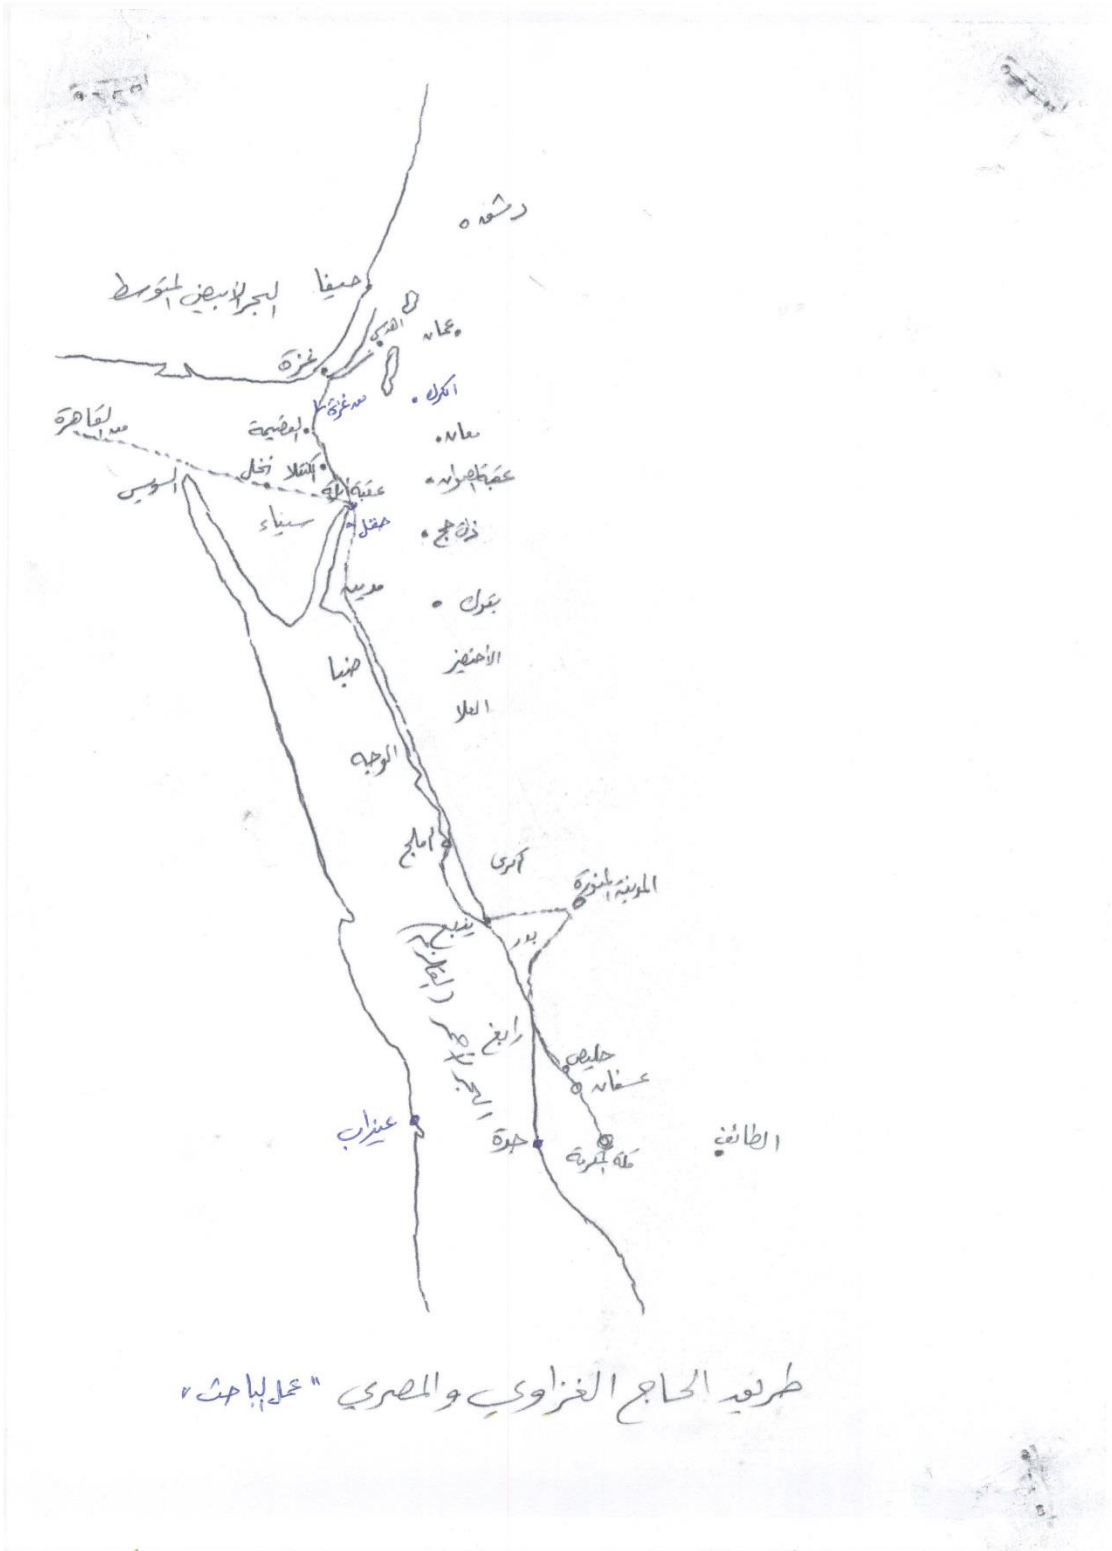 دمشق
حيفا
البحر الأبيض المتوسط
القدس
عمان
غزة
الكرك
من غزة
معان
العضيمة
من القاهرة
الكنتلا
نخل
عقبة الصوان
السويس
عقبة أيلة
سيناء
حقل
ذات حج
مدين
تبوك
الأخضر
ضبا
العلا
الوجه
أملج
المدينة المنورة
ينبع
بدر
رابغ
البحر الأحمر
خليص
عسفان
عيذاب
جدة
مكة المكرمة
الطائف
طريق الحاج الغزاوي والمصري "عمل الباحث"